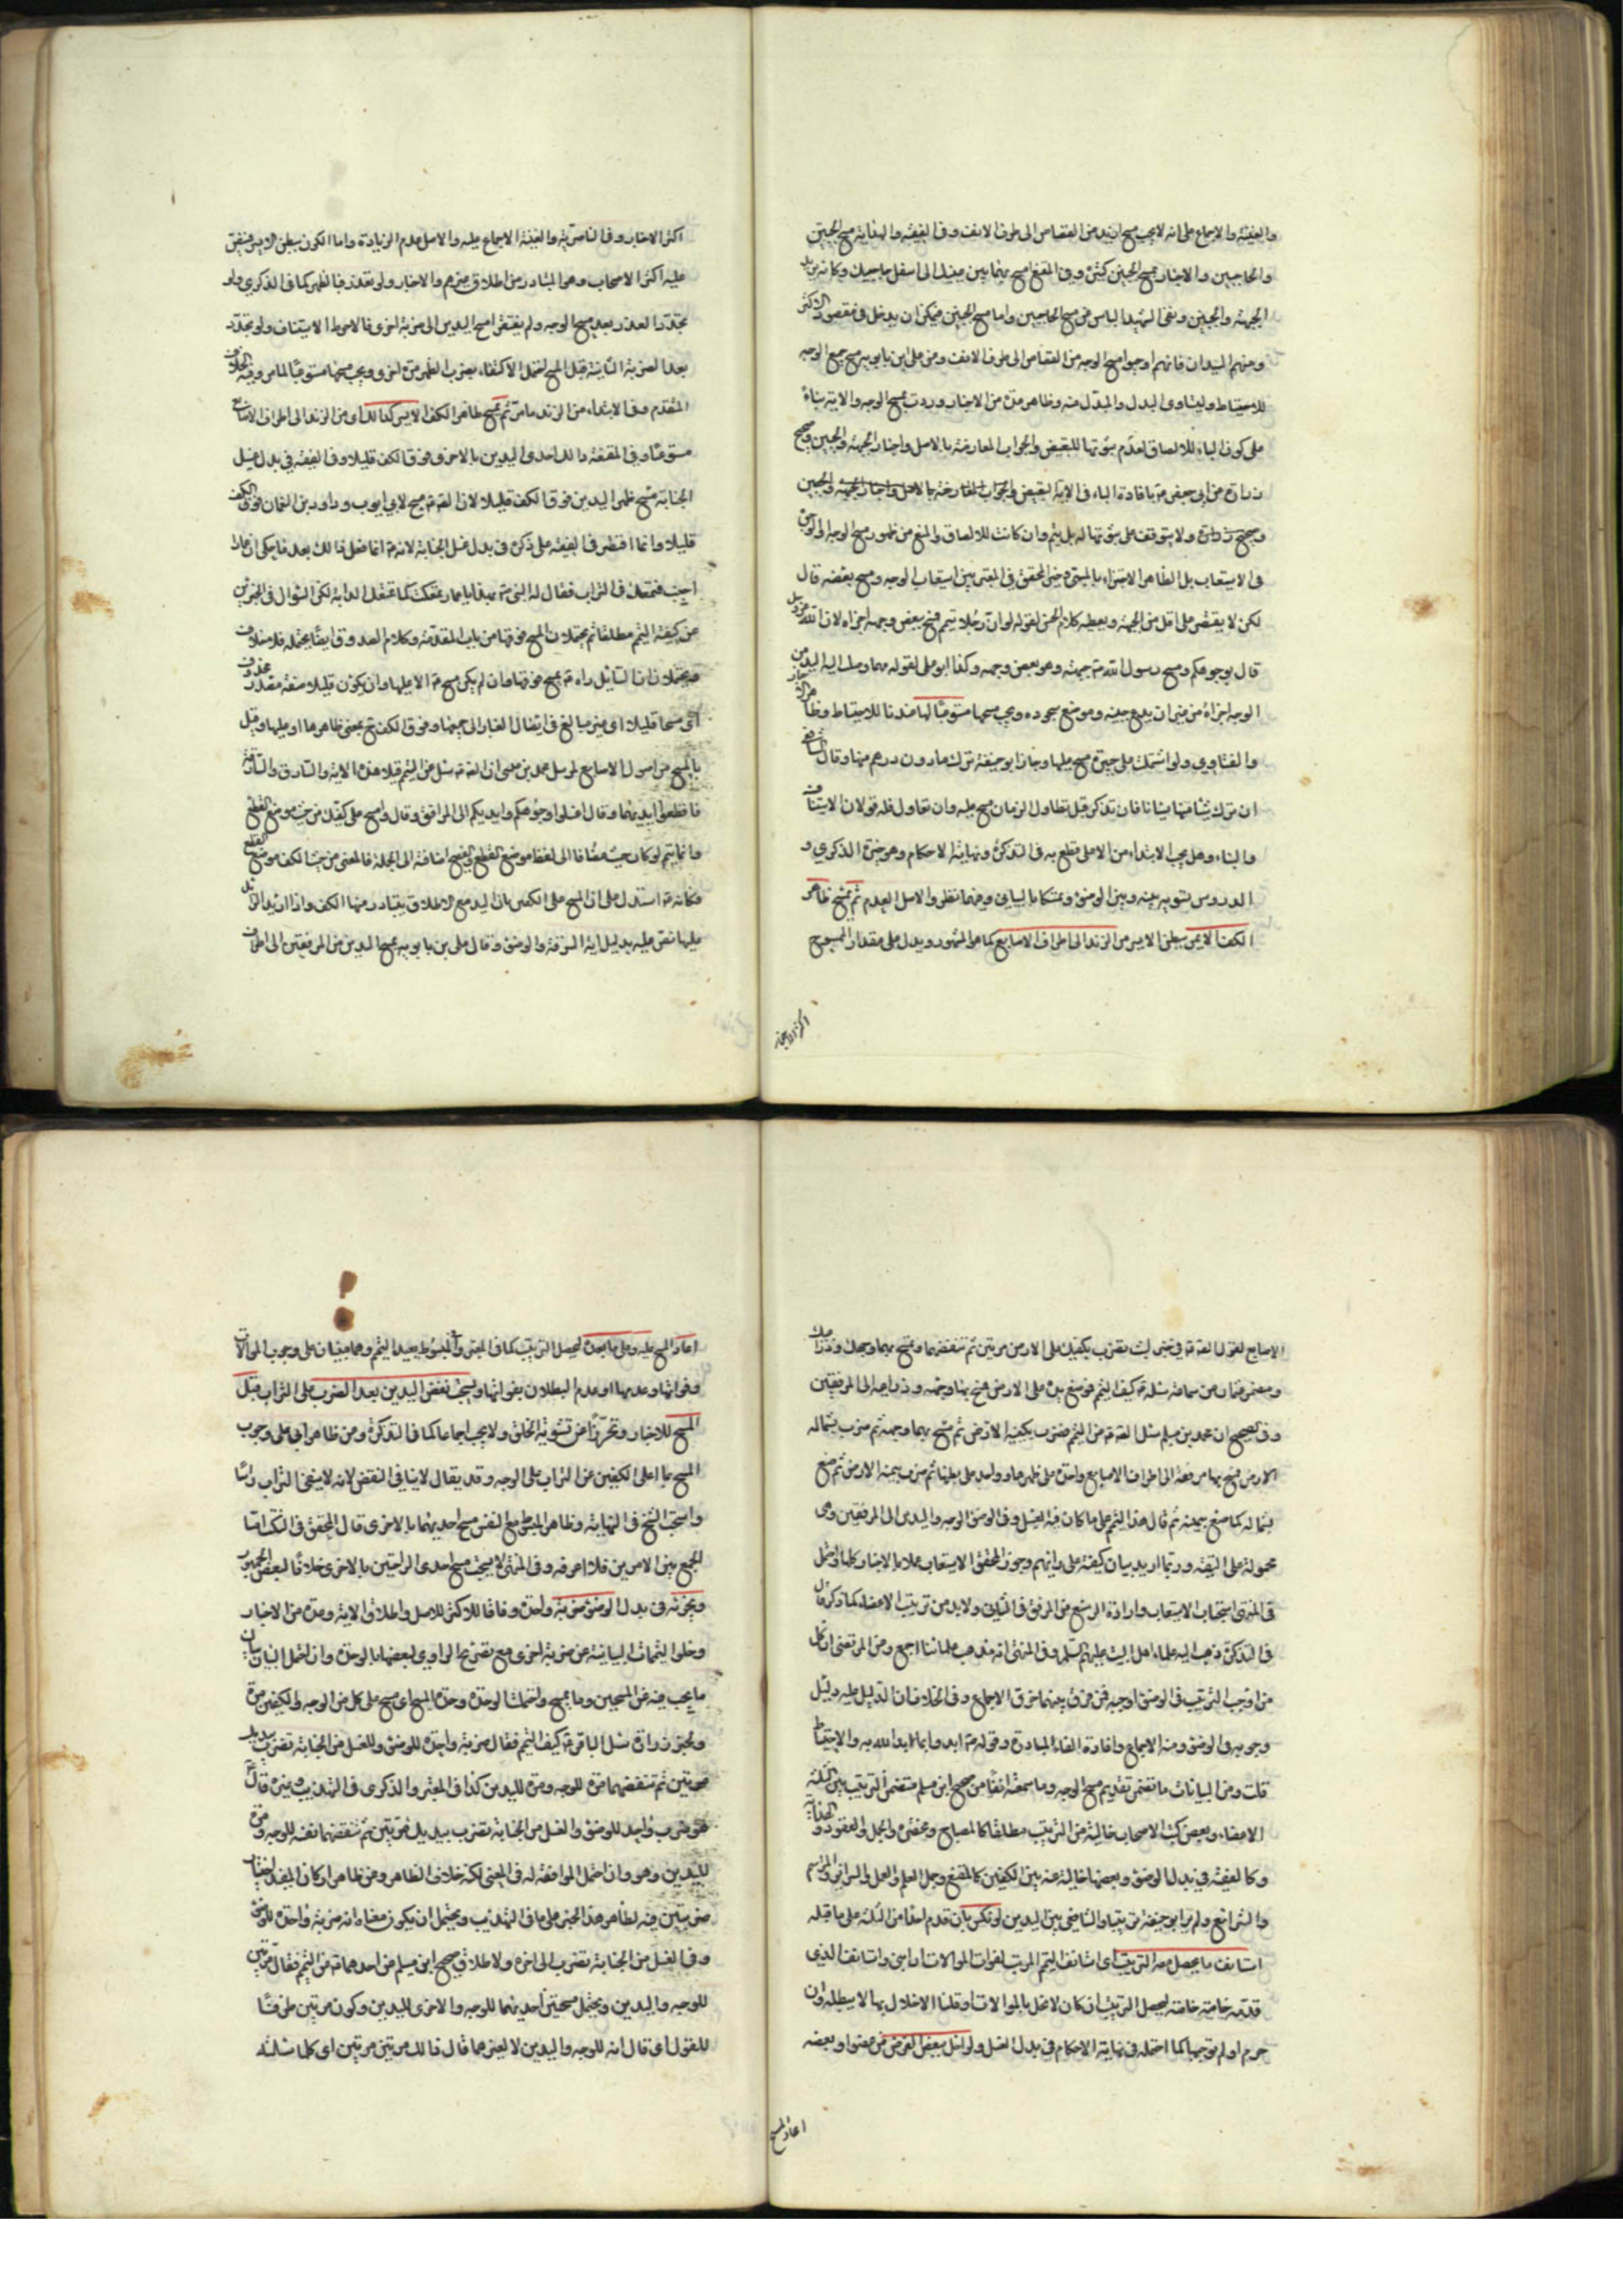 والفقيه والاجماع على انه لا يجب مسح ازيد من القصاص الى طرف الانف وفى الفقيه والهداية مسح الجبين
والحاجبين والاخبار بمسح الجبين كثيرة وفى المقنع امسح بهما بين عينيك الى اسفل حاجبيك وكانه يريد
الجبهة والجبين ونفى الشهيد الباس عن مسح الحاجبين واما مسح الجبين فيمكن ان يدخل فى مقصود الاكثر
ومنهم السيدان فانهم اوجبوا مسح الوجه من القصاص الى طرف الانف وعن على ابن بابويه مسح جميع الوجه
للاحتياط وليساوى البدل والمبدل منه وظاهر عدة من الاخبار وردت بمسح الوجه والاية بناء
على كون الباء للالصاق لعدم ثبوتها للتبعيض والجواب المعارضة بالاصل واخبار الجبهة والجبين وصحيح
زرارة عن ابى جعفر ع بافادة الباء فى الاية التبعيض والجواب المعارضة بالاصل واخبار الجبهة والجبين
وصحيح زرارة ولا يتوقف على ثبوتها له بل يتم وان كانت للالصاق والمنع من ظهور مسح الوجه او الوجوه
فى الاستيعاب بل الظاهر الاجتزاء بالمسمى وخير المحقق فى المعتبر بين استيعاب الوجه ومسح بعضه قال
لكن لا يقتصر على اقل من الجبهة ويعطيه كلام الحسن لقوله لو ان رجلا تيمم فمسح ببعض وجهه اجزاه لان الله عز وجل
قال بوجوهكم ومسح رسول الله ص جبهته وهو بعض وجهه وكذا ابو على لقوله مهما وصلت اليه اليد من
الوجه اجزاه من غير ان يدع جبينه وموضع سجوده ويجب مسحها مستوعبا لها عندنا للاحتياط وظاهر الاخبار
والفتاوى ولو اشتملت على جبيرة مسح عليها وجاز ابو حنيفة ترك ما دون درهم منها وقال الشافعى
ان ترك شيئا منها نسيانا فان تذكر قبل تطاول الزمان مسح عليه وان تطاول فله قولان الاستيناف
والبناء وهل يجب الابتداء من الاعلى قطع به فى التذكرة ونهاية الاحكام وهو خيرة الذكرى و
الدروس لتسويته بينه وبين الوضوء وتمسكا بالبيانى وفيهما نظر والاصل العدم ثم يمسح ظاهر
الكف الايمن ببطن الايسر من الزند الى اطراف الاصابع كما هو المشهور ويدل على مقدار الممسوح
اكثر الاخبار
اكثر الاخبار وفى الناصرية والغنية الاجماع عليه والاصل عدم الزيادة واما الكون ببطن الايسر فنص
عليه اكثر الاصحاب وهو المتبادر من اطلاق غيرهم والاخبار ولو تعذر فبالظهر كما فى الذكرى ولو
تجدد العذر بعد مسح الوجه ولم يفتقر امسح اليدين الى ضربة اخرى فالاحوط الاستيناف ولو تجدد
بعد الضربة الثانية قبل المسح احتمل الاكتفاء بضرب الظهر مرة اخرى ويجب مسحها مستوعبا لما مر وفيه الخلاف
المتقدم وفى الابتداء من الزند ما مر ثم يمسح ظاهر الكف الايسر كذلك اى من الزند الى اطراف الاصابع
مستوعبا وفى المقنعة دالك احدى اليدين بالاخرى فوق الكف قليلا وفى الفقيه فى بدل غسل
الجنابة مسح ظهر اليدين فوق الكف قليلا لان الصادق ع مسح لابى ايوب وداود بن النعمان فوق الكف
قليلا وانما اقتصر فى الفقيه على ذكره فى بدل غسل الجنابة لانه ع انما فعل ذلك بعد ما حكى ان عمارا
اجنب فتمعك فى التراب فقال له النبى ص يا عمار تمعكت كما تتمعك الدابة لكن السؤال فى الخبرين
عن كيفية التيمم مطلقا ثم يحتملان المسح فوقها من باب المقدمة وكلام الصدوق ايضا يحتمله فلا خلاف
ويحتملان ان السائل راه ع يمسح فوقها وان لم يكن مسح ع الا عليها وان يكون قليلا صفة مصدر محذوف
اى مسحا قليلا اى غير مبالغ فى ايصال الغبار الى جميعها وفوق الكف ح بمعنى ظاهرها او عليها وقيل
بالمسح من اصول الاصابع لمرسل حماد بن عيسى ان الصادق ع سئل عن التيمم فتلا هذه الاية والسارق والسارقة
فاقطعوا ايديهما وقال اغسلوا وجوهكم وايديكم الى المرافق وقال وامسح على كفيك من حيث موضع القطع
وانما يتم لو كان حيث مضافا الى لفظ موضع القطع والفصيح اضافته الى الجملة فالمعنى من حيث الكف موضع القطع
فكانه ع استدل على ان المسح على الكفين بان اليد مع الاطلاق يتبادر منها الكف واذا اريد الزائد
عليها نص عليه بدليل اية السرقة والوضوء وقال على بن بابويه بمسح اليدين من المرفقين الى اطراف
الاصابع لقول الصادق ع فى خبر ليث تضرب بكفيك على الارض مرتين ثم تنفضهما وتمسح بهما وجهك وذراعيك
ومضمر عثمان عن سماعة سئلته كيف التيمم فوضع يده على الارض فمسح بها وجهه وذراعيه الى المرفقين
وفى الصحيح ان محمد بن مسلم سئل الصادق ع عن التيمم فضرب بكفيه الارض ثم مسح بهما وجهه ثم ضرب بشماله
الارض فمسح بها مرفقه الى اطراف الاصابع واحدة على ظهرها وواحدة على بطنها ثم ضرب بيمينه الارض ثم صنع
بشماله كما صنع بيمينه ثم قال هذا التيمم على ما كان فيه الغسل وفى الوضوء الوجه واليدين الى المرفقين وهى
محمولة على التقية وربما اريد بيان كيفيته على رايهم وجوز المحقق الاستيعاب عملا بالاخبار كلها واحتمل
فى المنتهى استحباب الاستيعاب وارادة الرسغ من المرفق فى الثانى ولا بد من ترتيب الاعضاء كما ذكر قال
فى التذكرة ذهب اليه علماء اهل البيت عليهم السلم وفى المنتهى انه مذهب علمائنا اجمع وعن المرتضى ان كل
من اوجب الترتيب فى الوضوء اوجبه فمن فرق بينهما خرق الاجماع وفى الخلاف ان الدليل عليه دليل
وجوبه فى الوضوء ومنه الاجماع وافادة الفاء المبادرة وقوله ص ابدءوا بما بدا الله به والاحتياط
قلت ومن البيانات ما تضمن تقديم مسح الوجه وما سمعته انفا من صحيح ابن مسلم متضمن الترتيب بين الثلثة
الاعضاء وبعض كتب الاصحاب خالية عن الترتيب مطلقا كالمصباح ومختصره والجمل والعقود والهداية
وكالفقيه فى بدل الوضوء وبعضها خالية عنه بين الكفين كالمقنع وجمل العلم والعمل والسرائر والمراسم
والشرائع ولم ير ابو حنيفة ترتيبا والشافعى بين اليدين لو نكس بان قدم احدا من الثلثة على ما قبله
استانف ما يحصل معه الترتيب اى استانف التيمم المرتب لفوات الموالات راسا واستانف الذى
قدمه خاصة خاصة ليحصل الترتيب ان كان لا يخل بالموالات او قلنا الاخلال بها لا يبطله وان
حرم او لم نوجبها كما احتمله فى نهاية الاحكام فى بدل الغسل ولو اخل ببعض الفرض من عضو او بعضه
اعاد المسح
اعاد المسح عليه وعلى ما بعده ليحصل الترتيب كما فى المعتبر والمبسوط يعيد التيمم وهما مبنيان على وجوب الموالاة
وفواتها وعدمها او عدم البطلان بفواتها ويستحب نفض اليدين بعد الضرب على التراب قبل
المسح للاخبار وتحرزا عن تشويه الخلق ولا يجب اجماعا كما فى التذكرة وعن ظاهر ابى على وجوب
المسح بما على الكفين من التراب على الوجه وقد يقال لا ينافى النفض لانه لا ينفى التراب راسا
واستحب الشيخ فى النهاية وظاهر المبسوط مع النفض مسح احديهما بالاخرى قال المحقق فى النكت اما
الجمع بين الامرين فلا اعرفه وفى المنتهى لا يستحب مسح احدى الراحتين بالاخرى خلافا لبعض الجمهور
ويجزئه فى بدل الوضوء ضربة واحدة وفاقا للاكثر للاصل واطلاق الاية وعدة من الاخبار
وخلو التيممات البيانية عن ضربة اخرى مع تصريح الراوى لبعضها بالوحدة وان احتمل البيان بيان
ما يجب فيه من المسحين وما يمسح واحتملت الوحدة وحدة المسح اى مسح على كل من الوجه والكفين مرة
ولخبر زرارة سئل الباقر ع كيف التيمم فقال ضربة واحدة للوضوء وللغسل من الجنابة تضرب بيديك
مرتين ثم تنفضهما مرة للوجه ومرة لليدين كذا فى المعتبر والذكرى فى التهذيب وغيره قال
هو ضرب واحد للوضوء والغسل من الجنابة تضرب بيديك مرتين ثم تنفضهما نفضة للوجه ومرة
لليدين وهو وان احتمل الموافقة له فى المعنى لكنه خلاف الظاهر وعن ظاهر اركان المفيد اعتبار
ضربتين فيه لظاهر هذا الخبر على ما فى التهذيب ويحتمل ان يكون معناه انه ضربة واحدة للوضوء
وفى الغسل من الجنابة تضرب الى اخره ولاطلاق صحيح ابن مسلم عن احدهما ع عن التيمم فقال مرتين
للوجه واليدين ويحتمل مسحتين احديهما للوجه والاخرى لليدين وكون مرتين ظرفا
للقول اى قال انه للوجه واليدين لا لغيرهما قال ذلك مرتين مرتين اى كلما سئلته